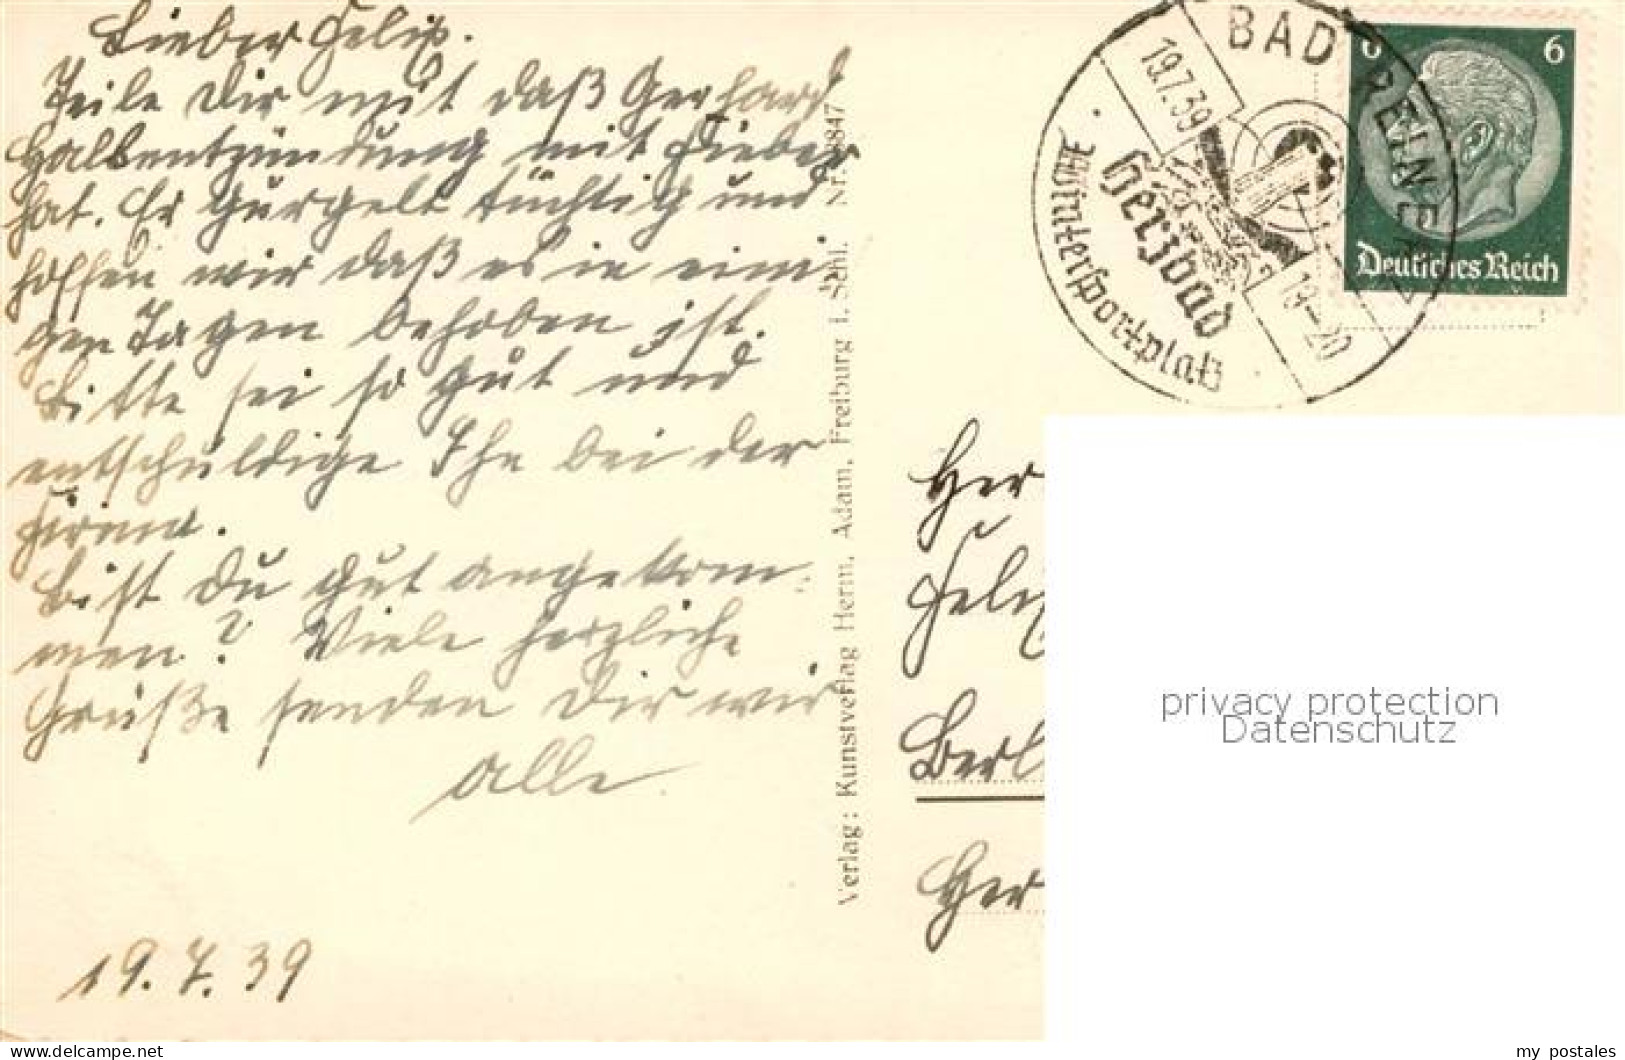 Lieber Felix.
Teile Dir mit daß Gerhard
Halsentzündung mit Fieber
hat. Er gurgelt tüchtig und
hoffen wir daß es in eini-
gen Tagen behoben ist.
Bitte sei so gut und
entschuldige Ihn bei der
Firma.
Bist Du gut angekom-
men? Viele herzliche
Grüße senden Dir wir
alle.
19.7.39
Verlag: Kunstverlag Herm. Adam, Freiburg i. Schl. Nr. 8847
BAD REINERZ
19.7.39
18-20
Herzbad
Wintersportplatz
6 6
Deutsches Reich
Her
Felix
Berl
Her
privacy protection
Datenschutz
my postales
www.delcampe.net